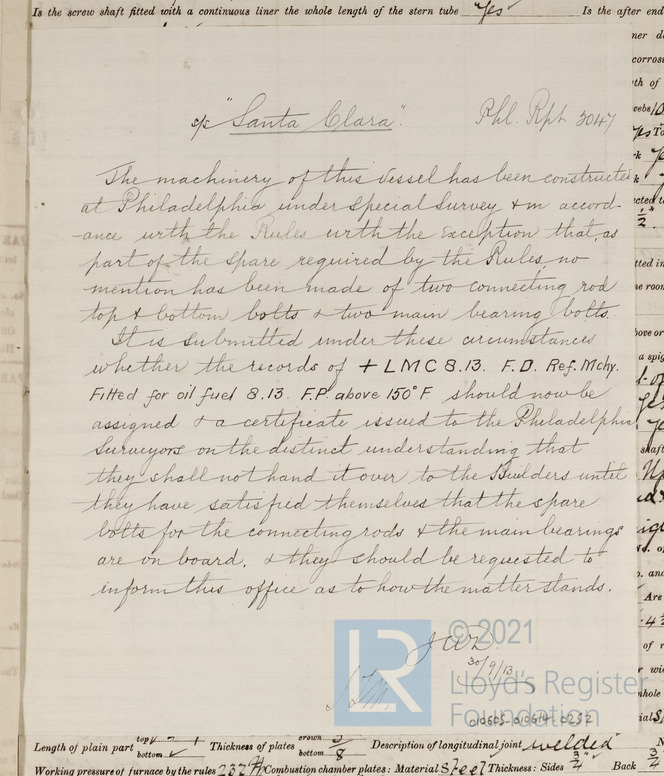 Is the screw shaft fitted with a continuous liner the whole length of the stern tube Yes Is the after end
s/s "Santa Clara". Phl. Rpt 3047
The machinery of this vessel has been constructed
at Philadelphia under Special Survey & in accord-
ance with the Rules with the exception that, as
part of the spare required by the Rules no
mention has been made of two connecting rod
top & bottom bolts & two main bearing bolts.
It is submitted under these circumstances
whether the records of + LMC 8.13. F.D. Ref. Mchy.
Fitted for oil fuel 8.13. F.P. above 150°F should now be
assigned & a certificate issued to the Philadelphia
Surveyors on the distinct understanding that
they shall not hand it over to the Builders until
they have satisfied themselves that the spare
bolts for the connecting rods & the main bearings
are on board, & they should be requested to
inform this office as to how the matter stands.
30/9/13
LR © 2021
Lloyd's Register
Foundation
010605-010614-0252
Length of plain part top bottom Thickness of plates crown bottom 8 Description of longitudinal joint welded
Working pressure of furnace by the rules 232 Combustion chamber plates: Material Steel Thickness: Sides 3/4" Back 3/4